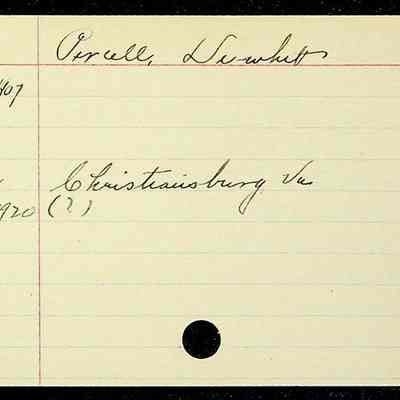 Percell, Dewhitt
407
Christiansburg Va
1920 (?)